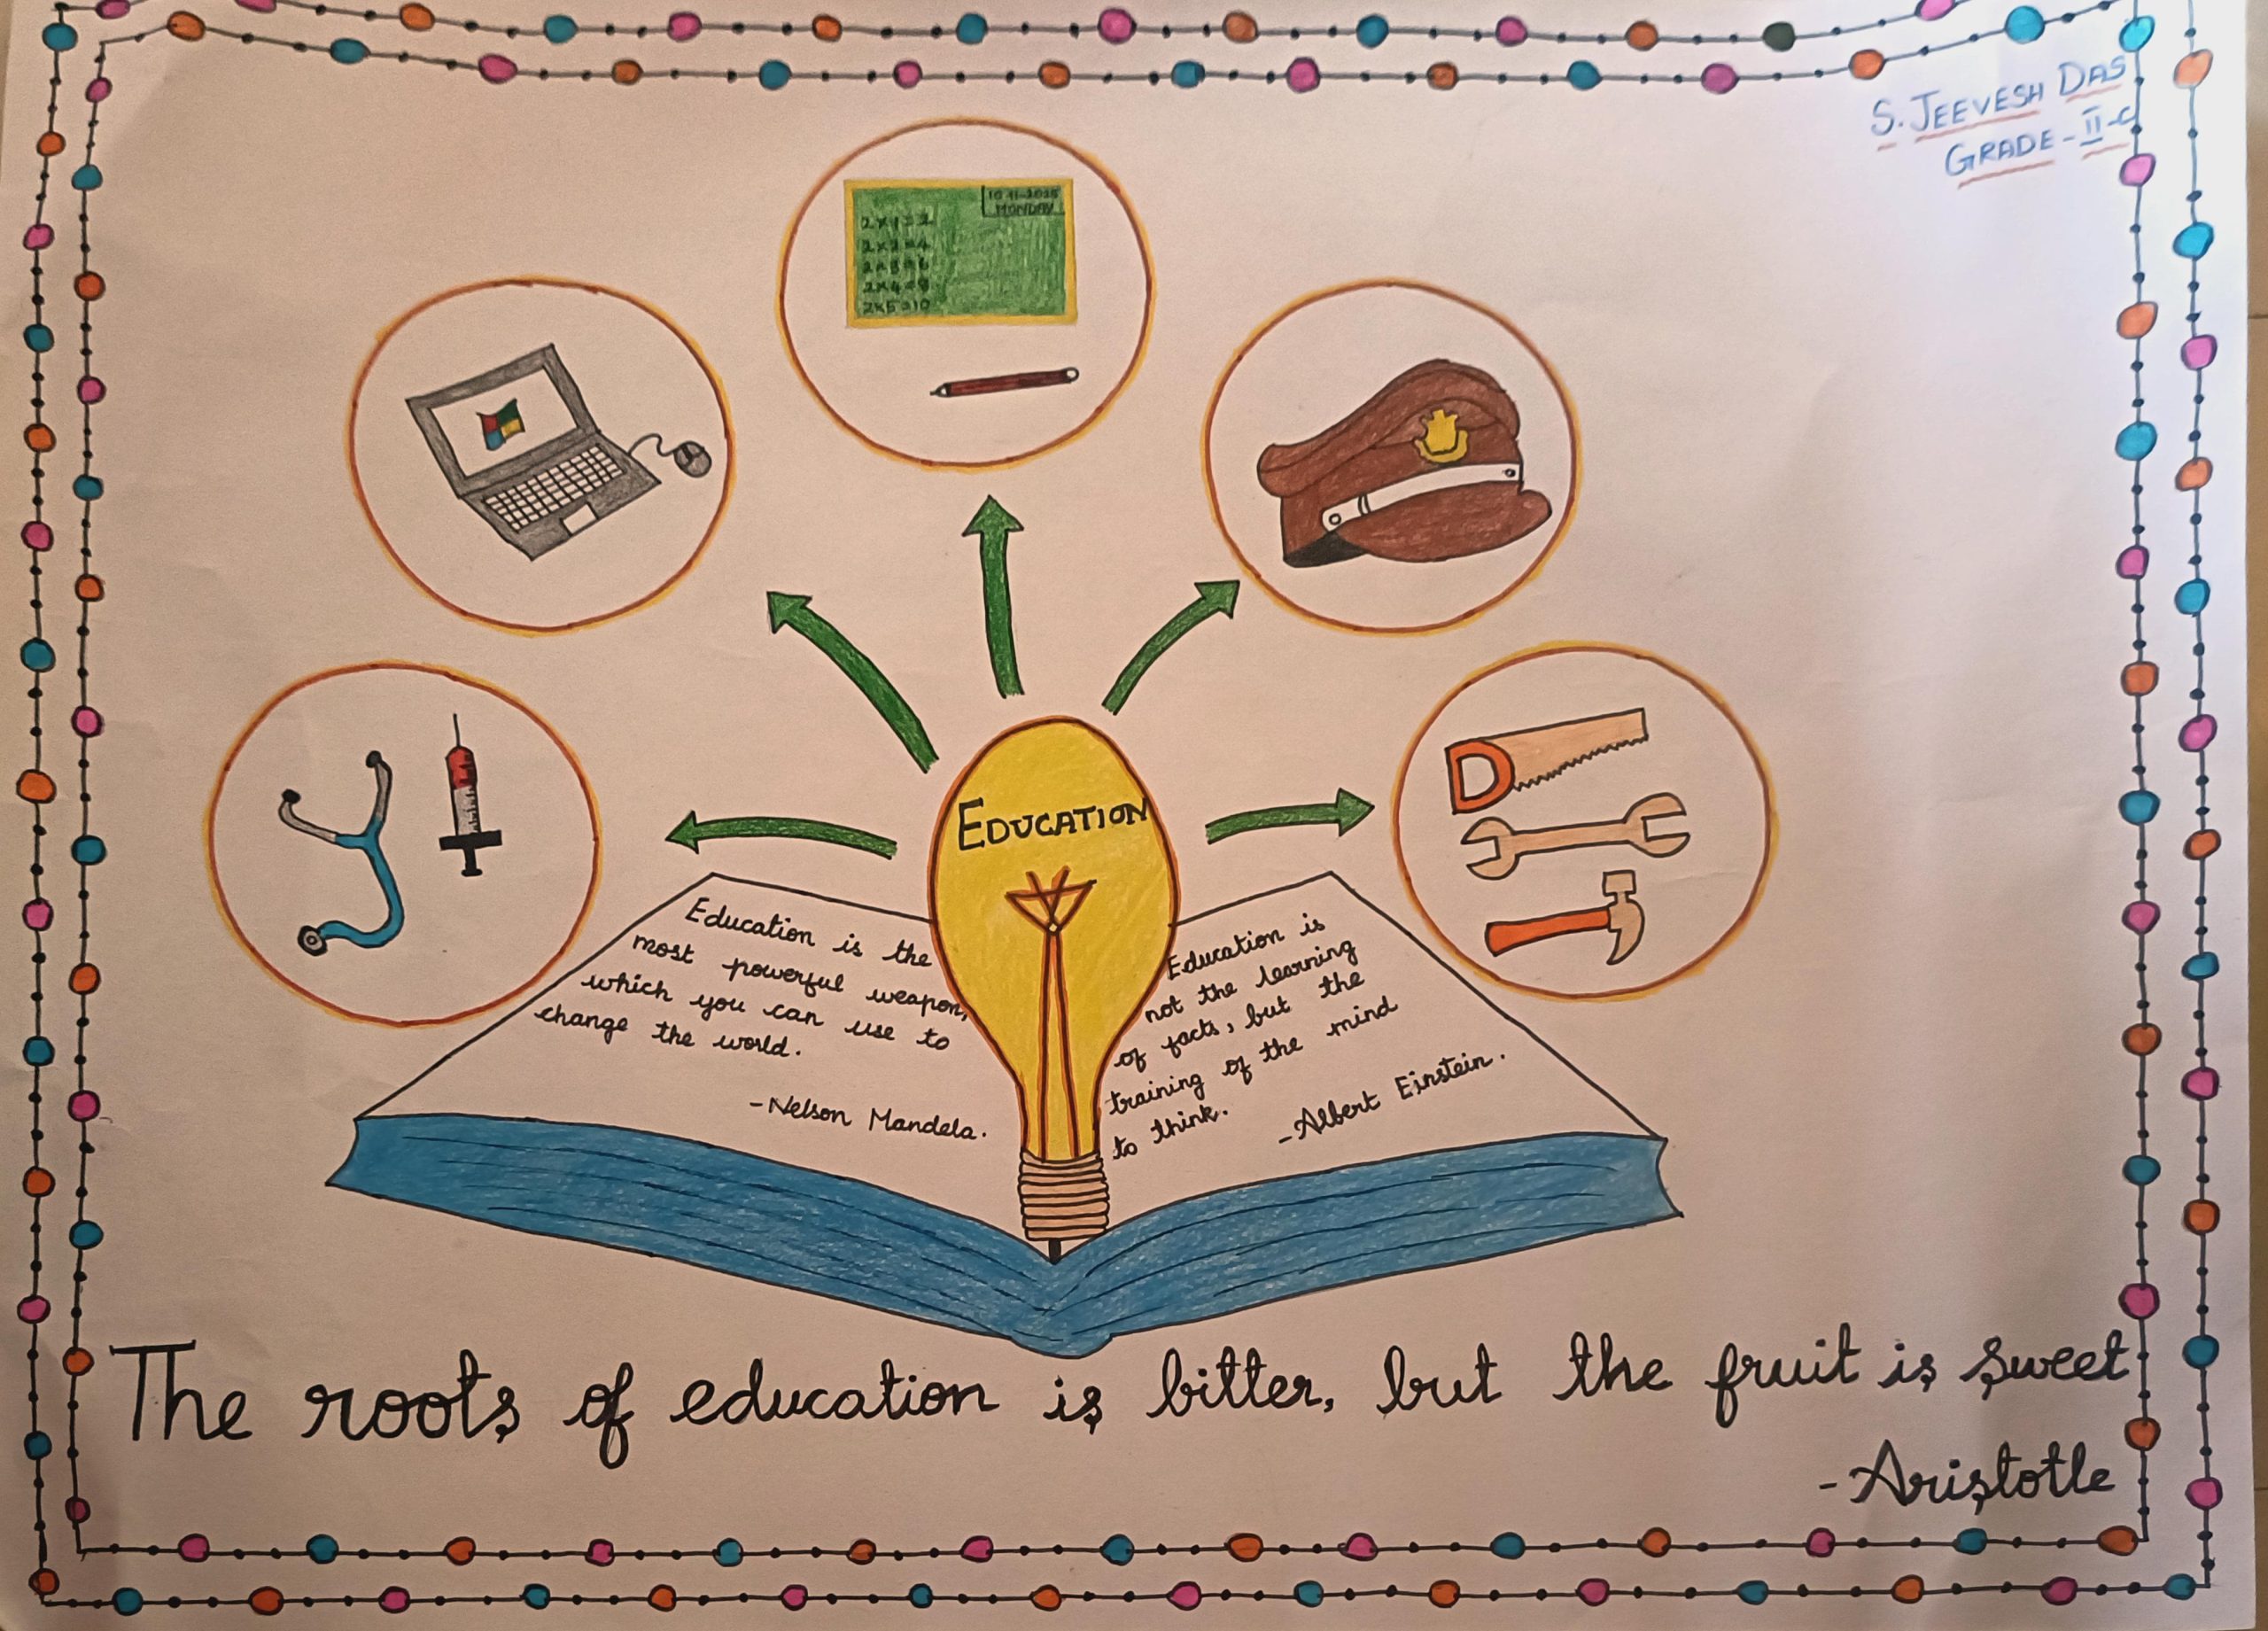 S. JEEVESH DAS
GRADE - II - C
10-11-2025
MONDAY
2 x 1 = 2
2 x 2 = 4
2 x 3 = 6
2 x 4 = 8
2 x 5 = 10
EDUCATION
Education is the
most powerful weapon,
which you can use to
change the world.
- Nelson Mandela.
Education is
not the learning
of facts, but the
training of the mind
to think.
- Albert Einstein.
The roots of education is bitter, but the fruit is sweet
- Aristotle